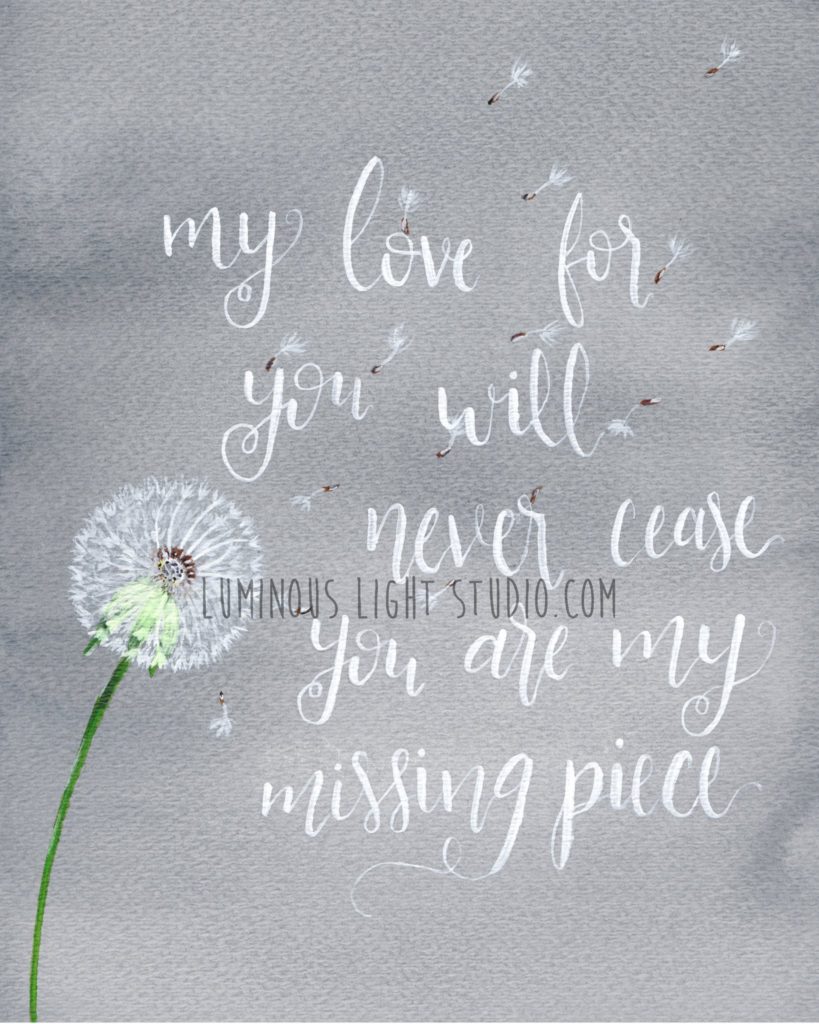 my love for
you will
never cease
LUMINOUS LIGHT STUDIO.COM
you are my
missing piece